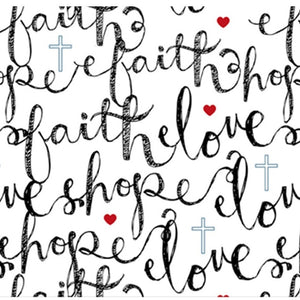 faith
hope faith hope
faith love
love hope love
hope faith love